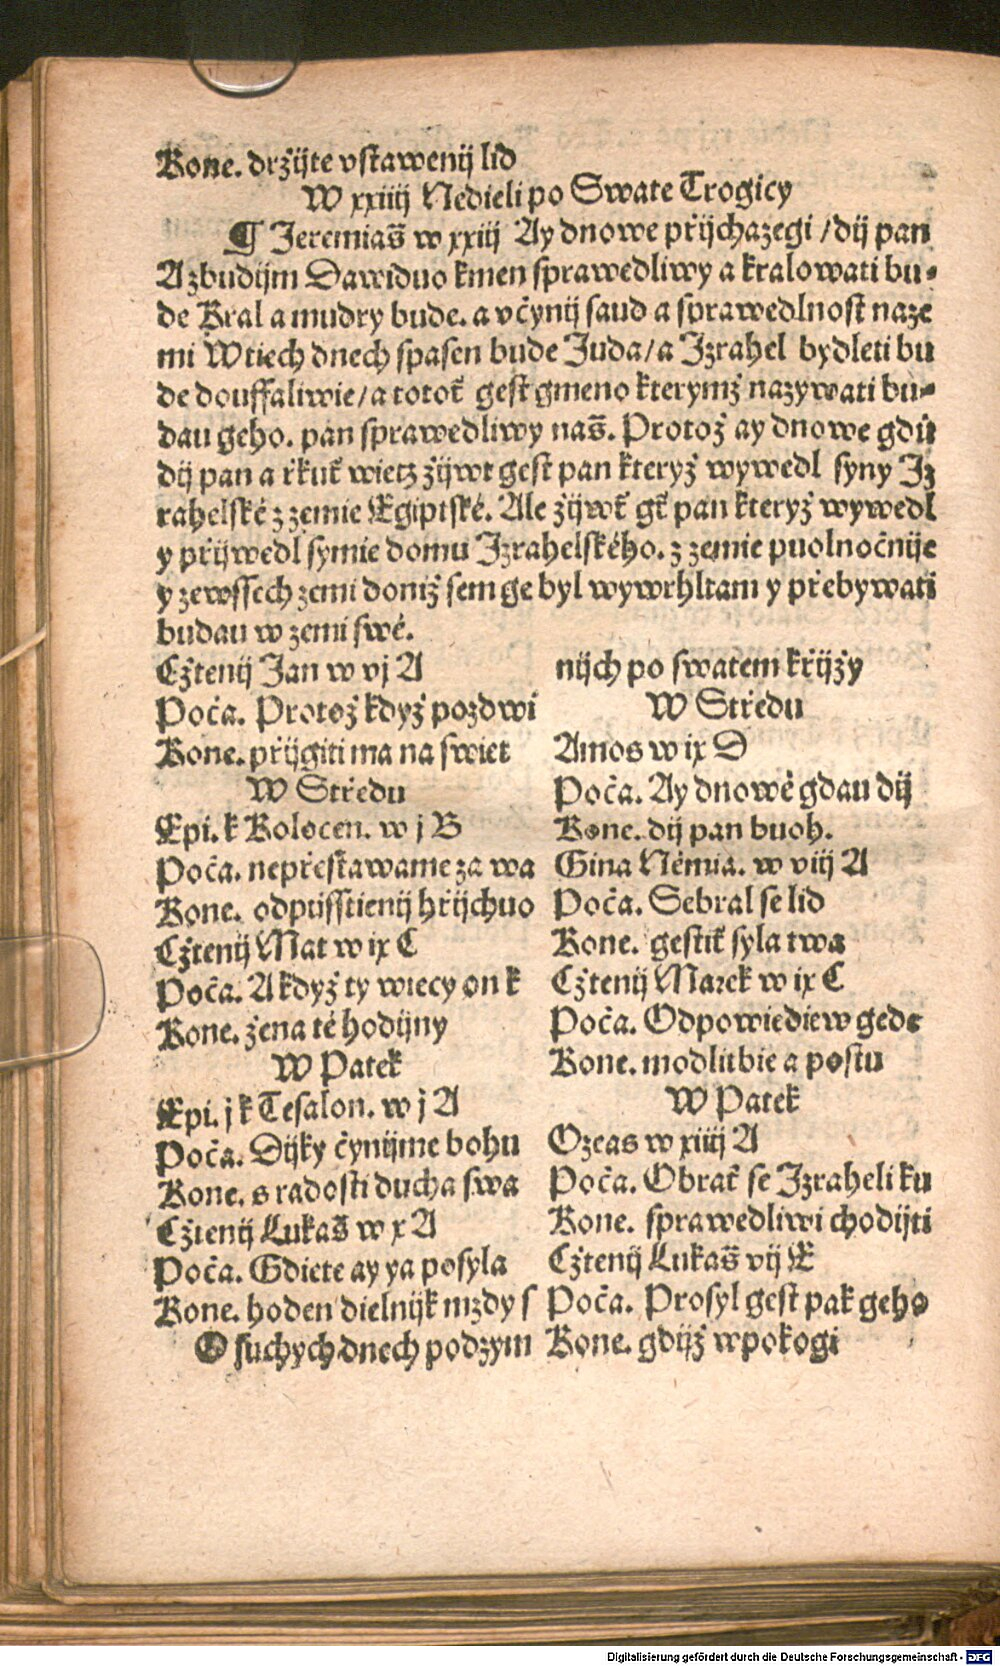 Kone. držijte vstawenij lid
W xxiiij Nedieli po Swate Trogicy
¶ Jeremiaš w xxiij Ay dnowe přijchazegi / dij pan
A zbudijm Dawiduo kmen sprawedliwy a kralowati bu⸗
de Kral a mudry bude. a včynij saud a sprawedlnost naze
mi W tiech dnech spasen bude Juda / a Jzrahel bydleti bu
de douffaliwie / a totoť gest gmeno kterymž nazywati bu⸗
dau geho. pan sprawedliwy naš. Protož ay dnowe gdú
dij pan a řkuť wietz žijwť gest pan kteryž wywedl syny Jz
rahelské z zemie Egiptské. Ale žijwť gť pan kteryž wywedl
y přijwedl symie domu Jzrahelského. z zemie puolnočnije
y zewssech zemi doniž sem ge byl wywrhl tam y přebywati
budau w zemi swé.
Cžtenij Jan w vj A
Poča. Protož když pozdwi
Kone. přijgiti ma na swiet
W Středu
Epi. k Kolocen. w j B
Poča. nepřestawame za wa
Kone. odpusstienij hřijchuo
Cžtenij Mat w ix C
Poča. A když ty wiecy on k
Kone. žena té hodijny
W Patek
Epi. j k Tesalon. w j A
Poča. Dijky čynijme bohu
Kone. s radosti ducha swa
Cžtenij Lukaš w x A
Poča. Gdiete ay ya posyla
Kone. hoden dielnijk mzdy s
O suchych dnech podzym
nijch po swatem křijžy
W Středu
Amos w ix D
Poča. Ay dnowé gdau dij
Kone. dij pan buoh.
Gina Némia. w viij A
Poča. Sebral se lid
Kone. gestiť syla twa
Cžtenij Marek w ix C
Poča. Odpowiediew gede
Kone. modlitbie a postu
W Patek
Ozeas w xiiij A
Poča. Obrať se Jzraheli ku
Kone. sprawedliwi chodijti
Cžtenij Lukaš vij E
Poča. Prosyl gest pak geho
Kone. gdijž w pokogi
Digitalisierung gefördert durch die Deutsche Forschungsgemeinschaft - DFG